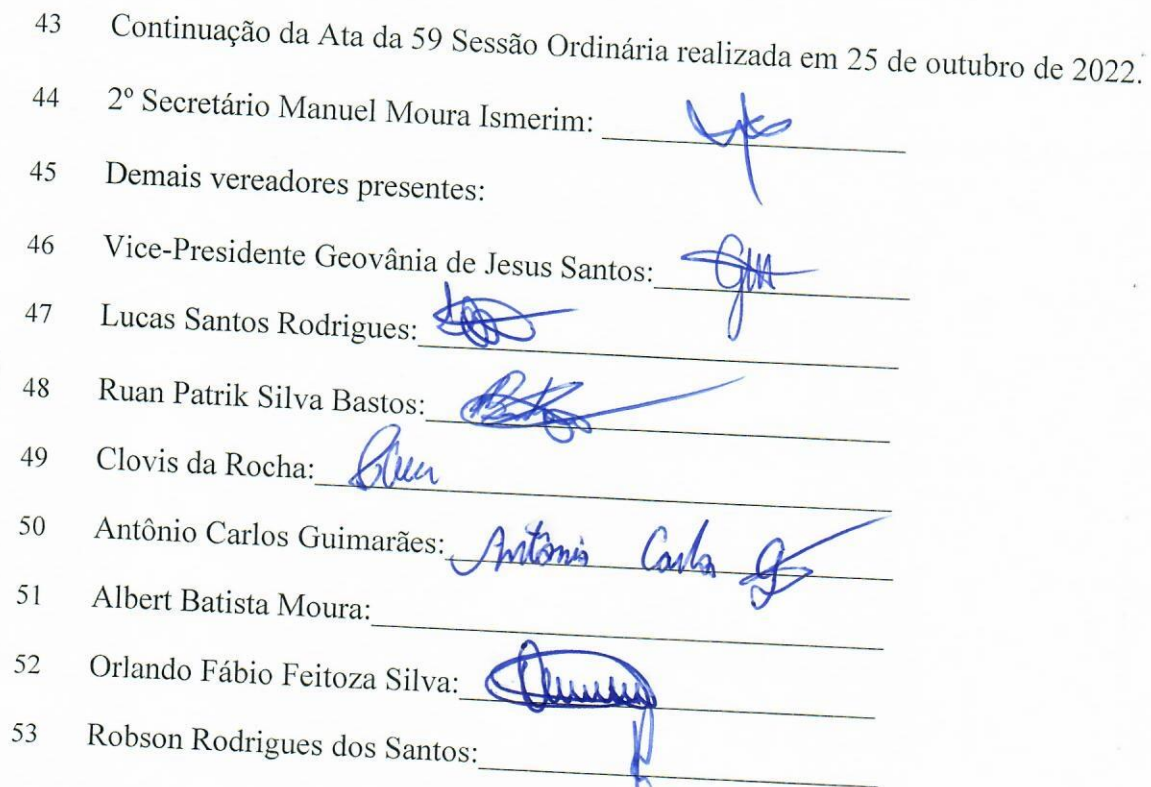 43 Continuação da Ata da 59 Sessão Ordinária realizada em 25 de outubro de 2022.
44 2º Secretário Manuel Moura Ismerim:
45 Demais vereadores presentes:
46 Vice-Presidente Geovânia de Jesus Santos:
47 Lucas Santos Rodrigues:
48 Ruan Patrik Silva Bastos:
49 Clovis da Rocha:
50 Antônio Carlos Guimarães: Antônio Carlos
51 Albert Batista Moura:
52 Orlando Fábio Feitoza Silva:
53 Robson Rodrigues dos Santos: